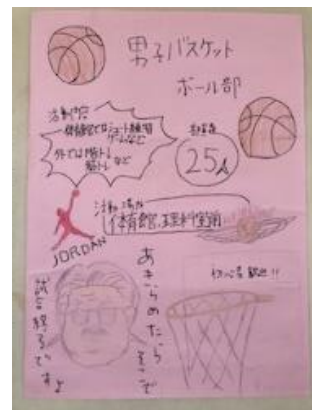 男子バスケット
ボール部
活動内容
体育館ではシュート練習
ゲームなど
外では階トレ
筋トレ など
部員数
25人
活動場所
体育館、理科室前
JORDAN
あきらめたら
そこで
試合終了ですよ
歓迎!!